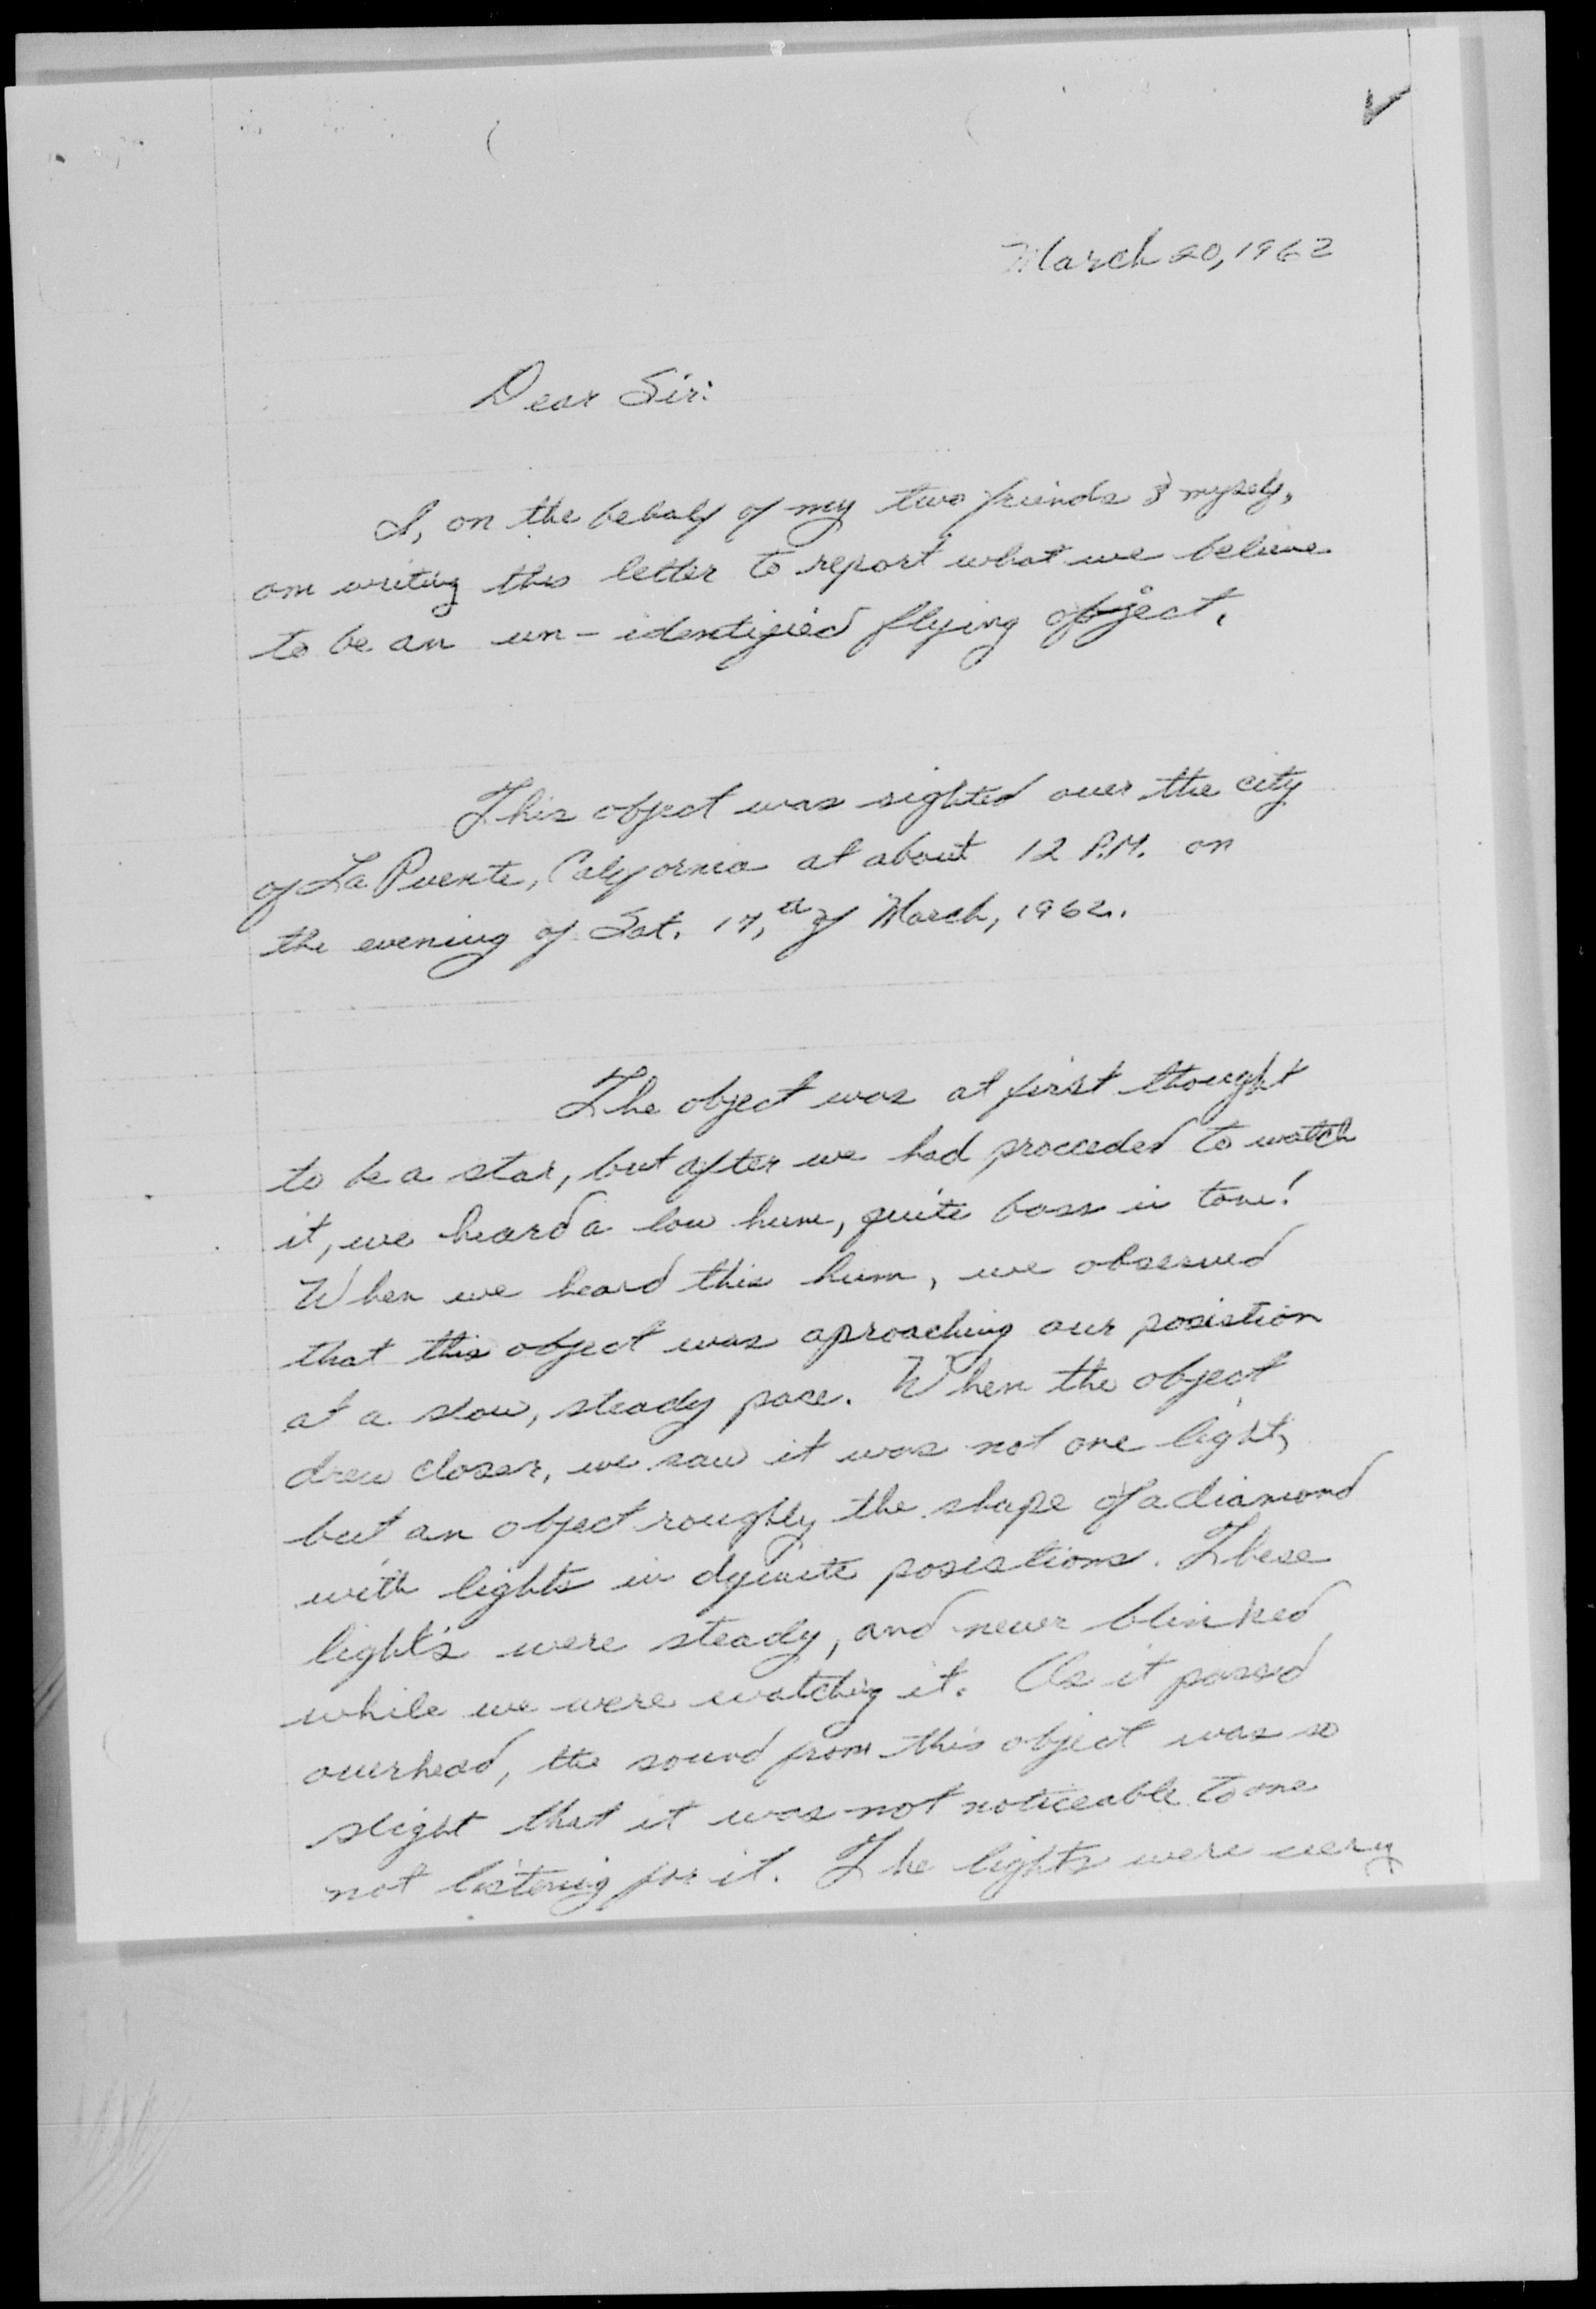 March 20, 1962
Dear Sir:
I, on the behalf of my two friends & myself,
am writing this letter to report what we believe
to be an un-identified flying object.
This object was sighted over the city
of La Puente, California at about 12 P.M. on
the evening of Sat. 17,th of March, 1962.
The object was at first thought
to be a star, but after we had proceeded to watch
it, we heard a low hum, quite bass in tone!
When we heard this hum, we observed
that this object was aproaching our posistion
at a slow, steady pace. When the object
drew closer, we saw it was not one light,
but an object roughly the shape of a diamond
with lights in posistions. These
light's were steady, and never blinked
while we were watching it. As it passed
overhead, the sound from this object was so
slight that it was not noticeable to one
not listening for it. The lights were very